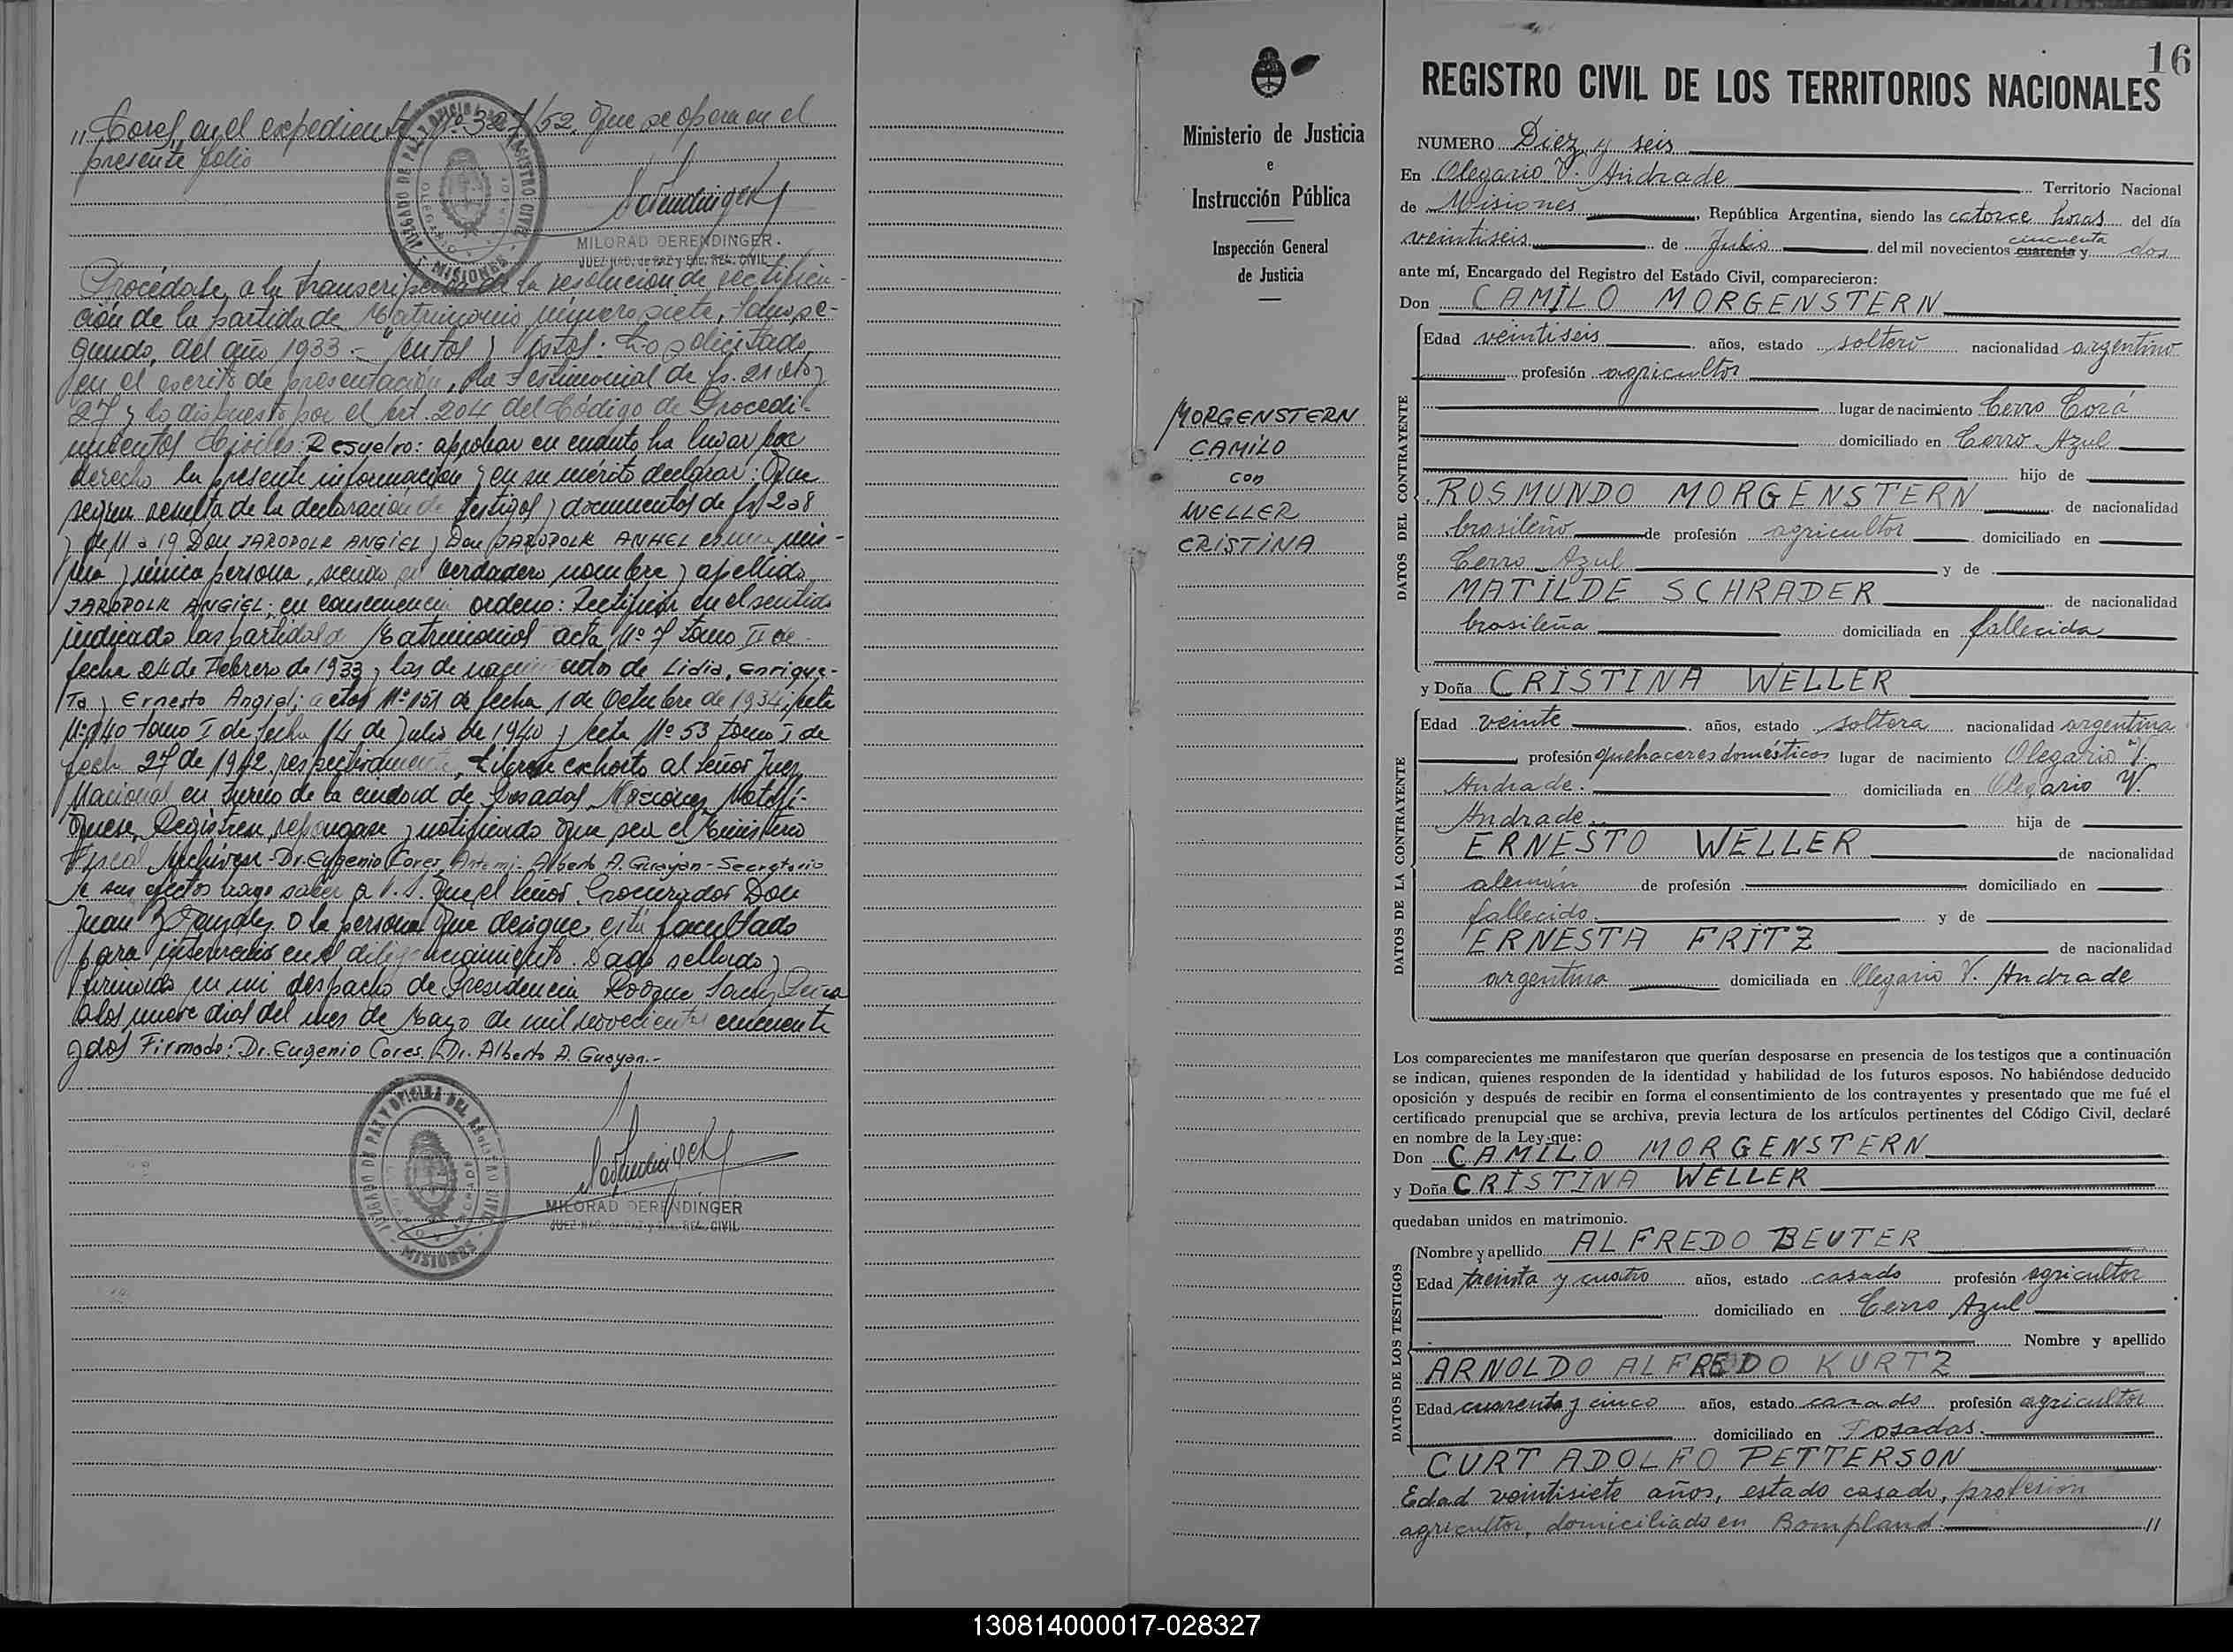 " Cores, en el expediente Nº 327/52, que se opera en el
presente folio
MILORAD DERENDINGER.
JUEZ NAC. de PAZ y ENC. REG. CIVIL
JUZGADO DE PAZ Y OFICINA DEL REGISTRO CIVIL
MISIONES
Procédase a la transcripción de la resolución de rectifica-
ción de la partida de Matrimonio número siete, tomo se-
gundo, del año 1933.- Autos y Vistos: Lo solicitado
en el escrito de presentación, la testimonial de fs. 21 vto y
27 y lo dispuesto por el Art. 204 del Código de Procedi-
mientos Civiles. Resuelvo: aprobar en cuanto ha lugar por
derecho la presente información y en su mérito declarar: Que
según resulta de la declaración de testigos y documentos de fs 2 a 8
y de 11 a 19 Don JAROPOLK ANGIEL y Don JAROPOLK ANHEL es una mis-
ma y única persona, siendo su verdadero nombre y apellido
JAROPOLK ANGIEL; en consecuencia ordeno: Rectificar en el sentido
indicado las partidas de Matrimonios acta Nº 7 tomo II de
fecha 24 de Febrero de 1933 y las de nacimientos de Lidia, Enrique-
Ta y Ernesto Angiel; actas Nº 151 de fecha 1 de Octubre de 1934; acta
Nº 140 tomo I de fecha 14 de Julio de 1940 y acta Nº 53 tomo I de
fecha 27 de 1942, respectivamente, Líbrese exhorto al señor Juez
Nacional en turno de la ciudad de Posadas, Misiones. Notifí-
quese, Regístrese, repóngase y notificado que sea el Ministerio
Fiscal Archívese - Dr. Eugenio Cores, Ante mi. Alberto A. Guayan - Secretario
A sus efectos hago saber a V.S. que el señor Procurador Don
Juan B. Gonzalez o la persona que designe está facultado
para intervenir en el diligenciamiento. Dado sellado y
firmado en mi despacho de Presidencia Roque Saenz Peña
a los nueve días del mes de Mayo de mil novecientos cincuenta
y dos Firmado: Dr. Eugenio Cores. Dr. Alberto A. Guayan.-
JUZGADO DE PAZ Y OFICINA DEL REGISTRO CIVIL
MISIONES
MILORAD DERENDINGER
JUEZ NAC. de PAZ y ENC. REG. CIVIL
Ministerio de Justicia
e
Instrucción Pública
Inspección General
de Justicia
MORGENSTERN
CAMILO
con
WELLER
CRISTINA
16
REGISTRO CIVIL DE LOS TERRITORIOS NACIONALES
NUMERO Diez y seis
En Olegario V. Andrade Territorio Nacional
de Misiones, República Argentina, siendo las catorce horas del día
veintiseis de Julio del mil novecientos cuarenta cincuenta y dos
ante mí, Encargado del Registro del Estado Civil, comparecieron:
Don CAMILO MORGENSTERN
DATOS DEL CONTRAYENTE
Edad veintiseis años, estado soltero nacionalidad argentino
profesión agricultor
lugar de nacimiento Cerro Corá
domiciliado en Cerro Azul
hijo de
ROSMUNDO MORGENSTERN de nacionalidad
brasileño de profesión agricultor domiciliado en
Cerro Azul y de
MATILDE SCHRADER de nacionalidad
brasileña domiciliada en fallecida
y Doña CRISTINA WELLER
DATOS DE LA CONTRAYENTE
Edad veinte años, estado soltera nacionalidad argentina
profesión quehaceres domésticos lugar de nacimiento Olegario V.
Andrade. domiciliada en Olegario V.
Andrade. hija de
ERNESTO WELLER de nacionalidad
alemán de profesión domiciliado en
fallecido. y de
ERNESTA FRITZ de nacionalidad
argentina domiciliada en Olegario V. Andrade
Los comparecientes me manifestaron que querían desposarse en presencia de los testigos que a continuación
se indican, quienes responden de la identidad y habilidad de los futuros esposos. No habiéndose deducido
oposición y después de recibir en forma el consentimiento de los contrayentes y presentado que me fué el
certificado prenupcial que se archiva, previa lectura de los artículos pertinentes del Código Civil, declaré
en nombre de la Ley que:
Don CAMILO MORGENSTERN
y Doña CRISTINA WELLER
quedaban unidos en matrimonio.
DATOS DE LOS TESTIGOS
Nombre y apellido ALFREDO BEUTER
Edad treinta y cuatro años, estado casado profesión agricultor
domiciliado en Cerro Azul
Nombre y apellido
ARNOLDO ALFREDO KURTZ
Edad cuarenta y cinco años, estado casado profesión agricultor
domiciliado en Posadas.
CURT ADOLFO PETTERSON
Edad veintisiete años, estado casado, profesión
agricultor, domiciliado en Bompland. //
130814000017-028327